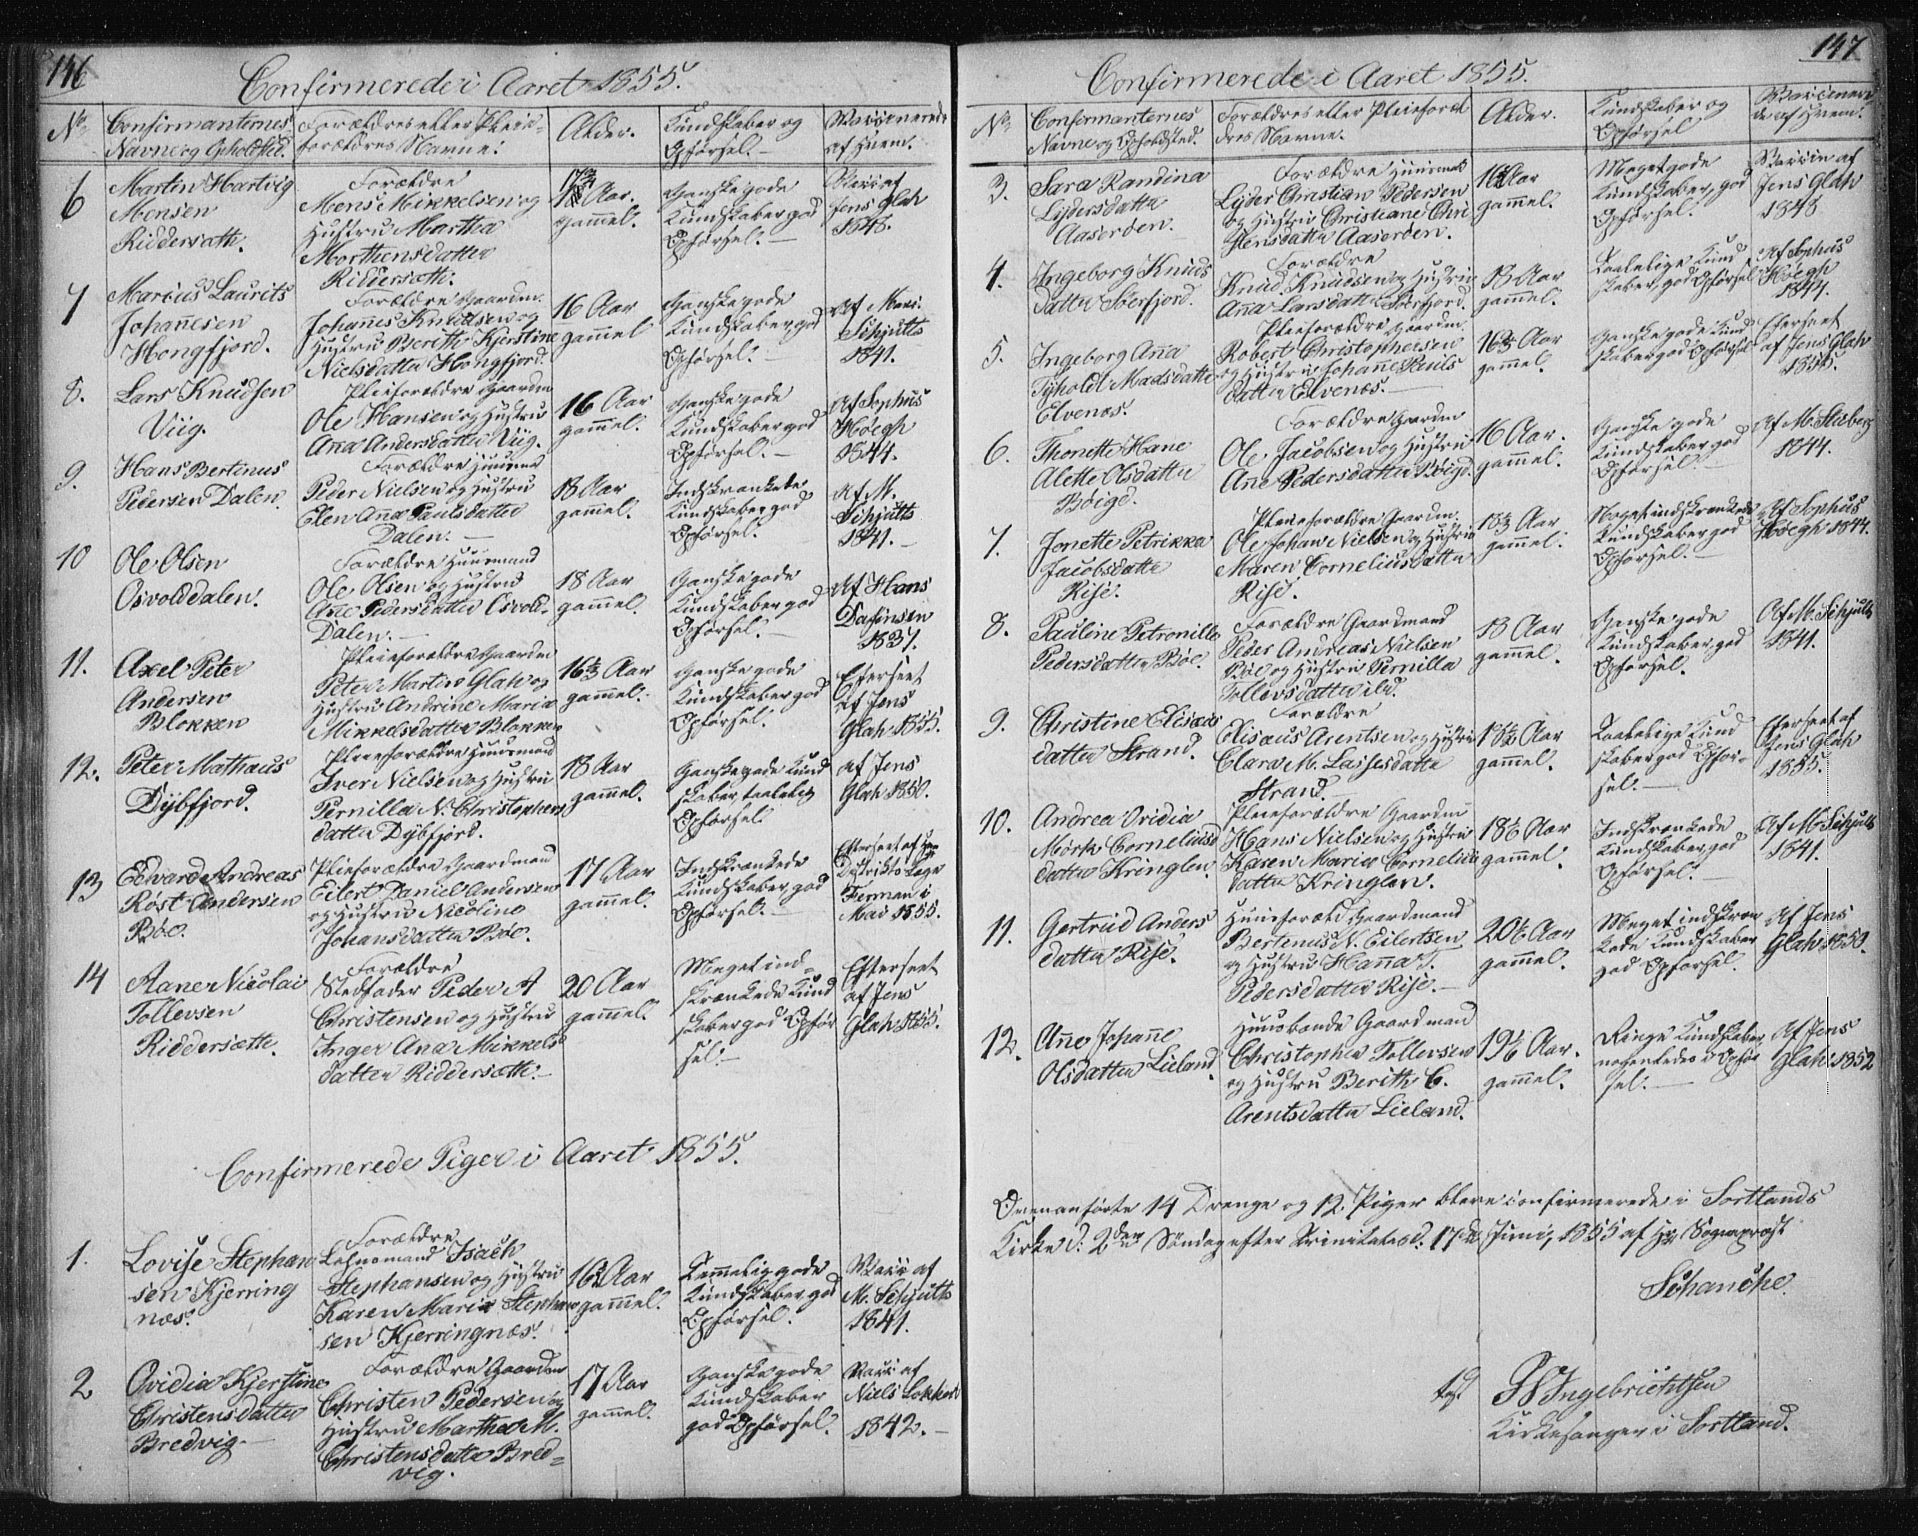 146
Confirmerede i Aaret 1855.
No.
Confirmanternes
Navne og Opholdsted.
Forældres eller Pleie-
forældres Navne.
Alder.
Kundskaber og
Opførsel.
Vaccinerede
af Hvem.
6
Martin Hartvig
Monsen
Riddersæth.
Forældre
Mons Mikkelsen og
Hustru Martha
Morthensdatter
Riddersæth.
Aar
gammel.
Ganske gode
Kundskaber, god
Opførsel.
Vacc: af
Jens Glah
1848.
7
Marius Laurits
Johanesen
Hongfjord.
Forældre Gaardm.
Johanes Knudsen og
Hustru Berith Kjerstine
Nielsdatter Hongfjord.
16 Aar
gammel
Ganske gode
Kundskaber, god
Opførsel.
Af Mari.
Schjutts
1841.
8.
Lars Knudsen
Viig.
Pleieforældre Gaardm
Ole Hansen og Hustru
Ana Andersdatter Viig.
16 Aar
gammel.
Ganske gode
Kundskaber god
Opførsel.
Af Sophus
Höegh
1844.
9.
Hans Bertinus
Pedersen Dalen.
Forældre Huusmd
Peder Nielsen og Hustru
Elen Ana Paulsdatter
Dalen.
18 Aar
gammel.
Indskrænkede
Kundskaber god
Opførsel.
Af M.
Schjutts
1841.
10
Ole Olsen
Osvolddalen.
Forældre Huusmand
Ole Olsen og Hustru
Ane Pedersdatter Osvold-
Dalen.
18 Aar
gammel.
Ganske gode
Kundskaber, god
Opførsel.
Af Hans
Dafinsen
1837.
11.
Axel Peter
Andersen
Blokken
Pleieforældre Gaardm
Peter Martin Glah og
Hustru Andrine Maria
Mikkelsdatter Blokken
16½ Aar
gammel.
Ganske gode
Kundskaber god
Opførsel.
Efterseet
af Jens
Glah 1855.
12.
Peter Mathæus
Dybfjord.
Pleieforældre Huusmand
Iver Nielsen og Hustru
Pernilla N. Christophers
datter Dybfjord.
18 Aar
gammel.
Ganske gode Kund
skaber, taalelig
Opførsel
af Jens
Glah 1850.
13
Edvard Andreas
Röst Andersen
Böe.
Pleieforældre Gaardmand
Eilert Daniel Andersen
og Hustru Nicoline
Johansdatter Böe.
17 Aar
gammel.
Indskrænkede
Kundskaber, god
Opførsel.
Efterseet af Hr
Distriktslæge
Ferman i
Mai 1855.
14
Raner Nicolai
Tollevsen
Riddersætte.
Forældre
Stedfader Peder A
Christensen og Hustru
Inger Ana Mikkels
datter Riddersæth.
20 Aar
gammel.
Meget ind-
skrænkede Kund
skaber god Opfør
sel.
Efterseet
af Jens
Glah 1855.
Confirmerede Piger i Aaret 1855.
1.
Lovise Stephan
sen Kjerring
næs.
Forældre
Lehnsmand Isach
Stephansen og Hustru
Karen Maria Stephan
sen Kjerringnæs.
16½ Aar
gammel.
Temmelig gode
Kundskaber, god
Opførsel.
Vacc af
M. Schjutts
1841.
2
Ovidia Kjerstine
Christensdatter
Bredvig.
Forældre Gaardm
Christen Pedersen og
Hustru Martha M.
Christensdatter Bred-
vig.
17 Aar
gammel.
Ganske gode
Kundskaber
god Opførsel.
Vacc af
Niels Lokken
1842.
147
Confirmerede i Aaret 1855.
No.
Confirmanternes
Navne og Opholdsted.
Forældres eller Pleieforæl
dres Navne.
Alder.
Kundskaber og
Opførsel
Vaccinere
de af Hvem.
3.
Sara Randina
Lydersdatter
Aaserden.
Forældre Huusmd
Lyder Christian Pedersen
og Hustru Christiane Chri
stensdatter Aaserden.
Aar
gammel.
Meget gode
Kundskaber, god
Opførsel.
Vaccin af
Jens Glah
1848
4.
Ingeborg Knuds
datter Sörfjord.
Forældre
Knud Knudsen og Hustru
Ana Larsdatter Sörfjord.
18 Aar
gammel.
Taalelige Kund
skaber, god Opførsel
Af Sophus
Höegh
1844.
5.
Ingeborg Ana
Tyholdt Madsdatter
Elvenæs.
Pleieforældre Gaardm.
Robert Christophersen
og Hustru Johane Pauls
datter Elvenæs.
16½ Aar
gammel.
Ganske gode Kund
skaber god Opførsel
Efterseet
af Jens Glah
1855.
6.
Thonette Hane
Alette Olsdatter
Böigd.
Forældre Gaardm
Ole Jacobsen og Hustru
Ane Pedersdatter Böigd.
16 Aar.
gammel.
Ganske gode
Kundskaber god
Opførsel.
Af M.
1844.
7.
Jonette Petrikka
Jacobsdatter
Rise.
Pleieforældre Gaardm.
Ole Johan Nielsen og Hustru
Maren Corneliusdatter
Rise.
18½ Aar
gammel.
Noget indskrænkede
Kundskaber, god
Opførsel.
Af Sophus
Höegh 1844.
8.
Pauline Petronille
Pedersdatter Böe.
Forældre Gaardmand
Peder Andreas Nielsen
Böe og Hustru Pernilla
Tollevsdatter ibd.
18 Aar
gammel.
Ganske gode
Kundskaber, god
Opførsel.
Af M. Schjutts
1841.
9.
Christine Elisæus
datter Strand.
Forældre
Elisæus Arentsen og Hustru
Clara M. Laisesdatter
Strand.
18½ Aar
gammel.
Taalelige Kund
skaber god Opfør-
sel.
Efterseet af
Jens Glah
1855.
10.
Andrea Ovidia
Mörk Cornelius
datter Kringlen.
Pleieforældre Gaardm
Hans Nielsen og Hustru
Karen Maria Cornelius
datter Kringlen.
18½ Aar
gammel.
Indskrænkede
Kundskaber, god
Opførsel.
Af M Schjutts
1841.
11.
Gertrud Anders
datter Rise.
Gaardmand
Bertenus N. Eilertsen
og Hustru Hanna J.
Pedersdatter Rise.
20½ Aar
gammel.
Meget indskræn
kede Kundskaber
god Opførsel.
Af Jens
Glah 1850.
12.
Ane Johane
Olsdatter Lieland.
Huusbonde Gaardmand
Christopher Tollevsen
og Hustru Berith C.
Arentsdatter Lieland.
19½ Aar.
gammel.
Ringe Kundskaber
Opfør
sel.
Af Jens
Glah 1852
Ovenanførte 14 Drenge og 12 Piger bleve confirmerede i Sortlands
Kirke d: 2den Søndag efter Trinitatis d: 17de Juni, 1855 af Hr Sogneprest
Schanche.
test
Ingebrichtsen
Kirkesanger i Sortland.